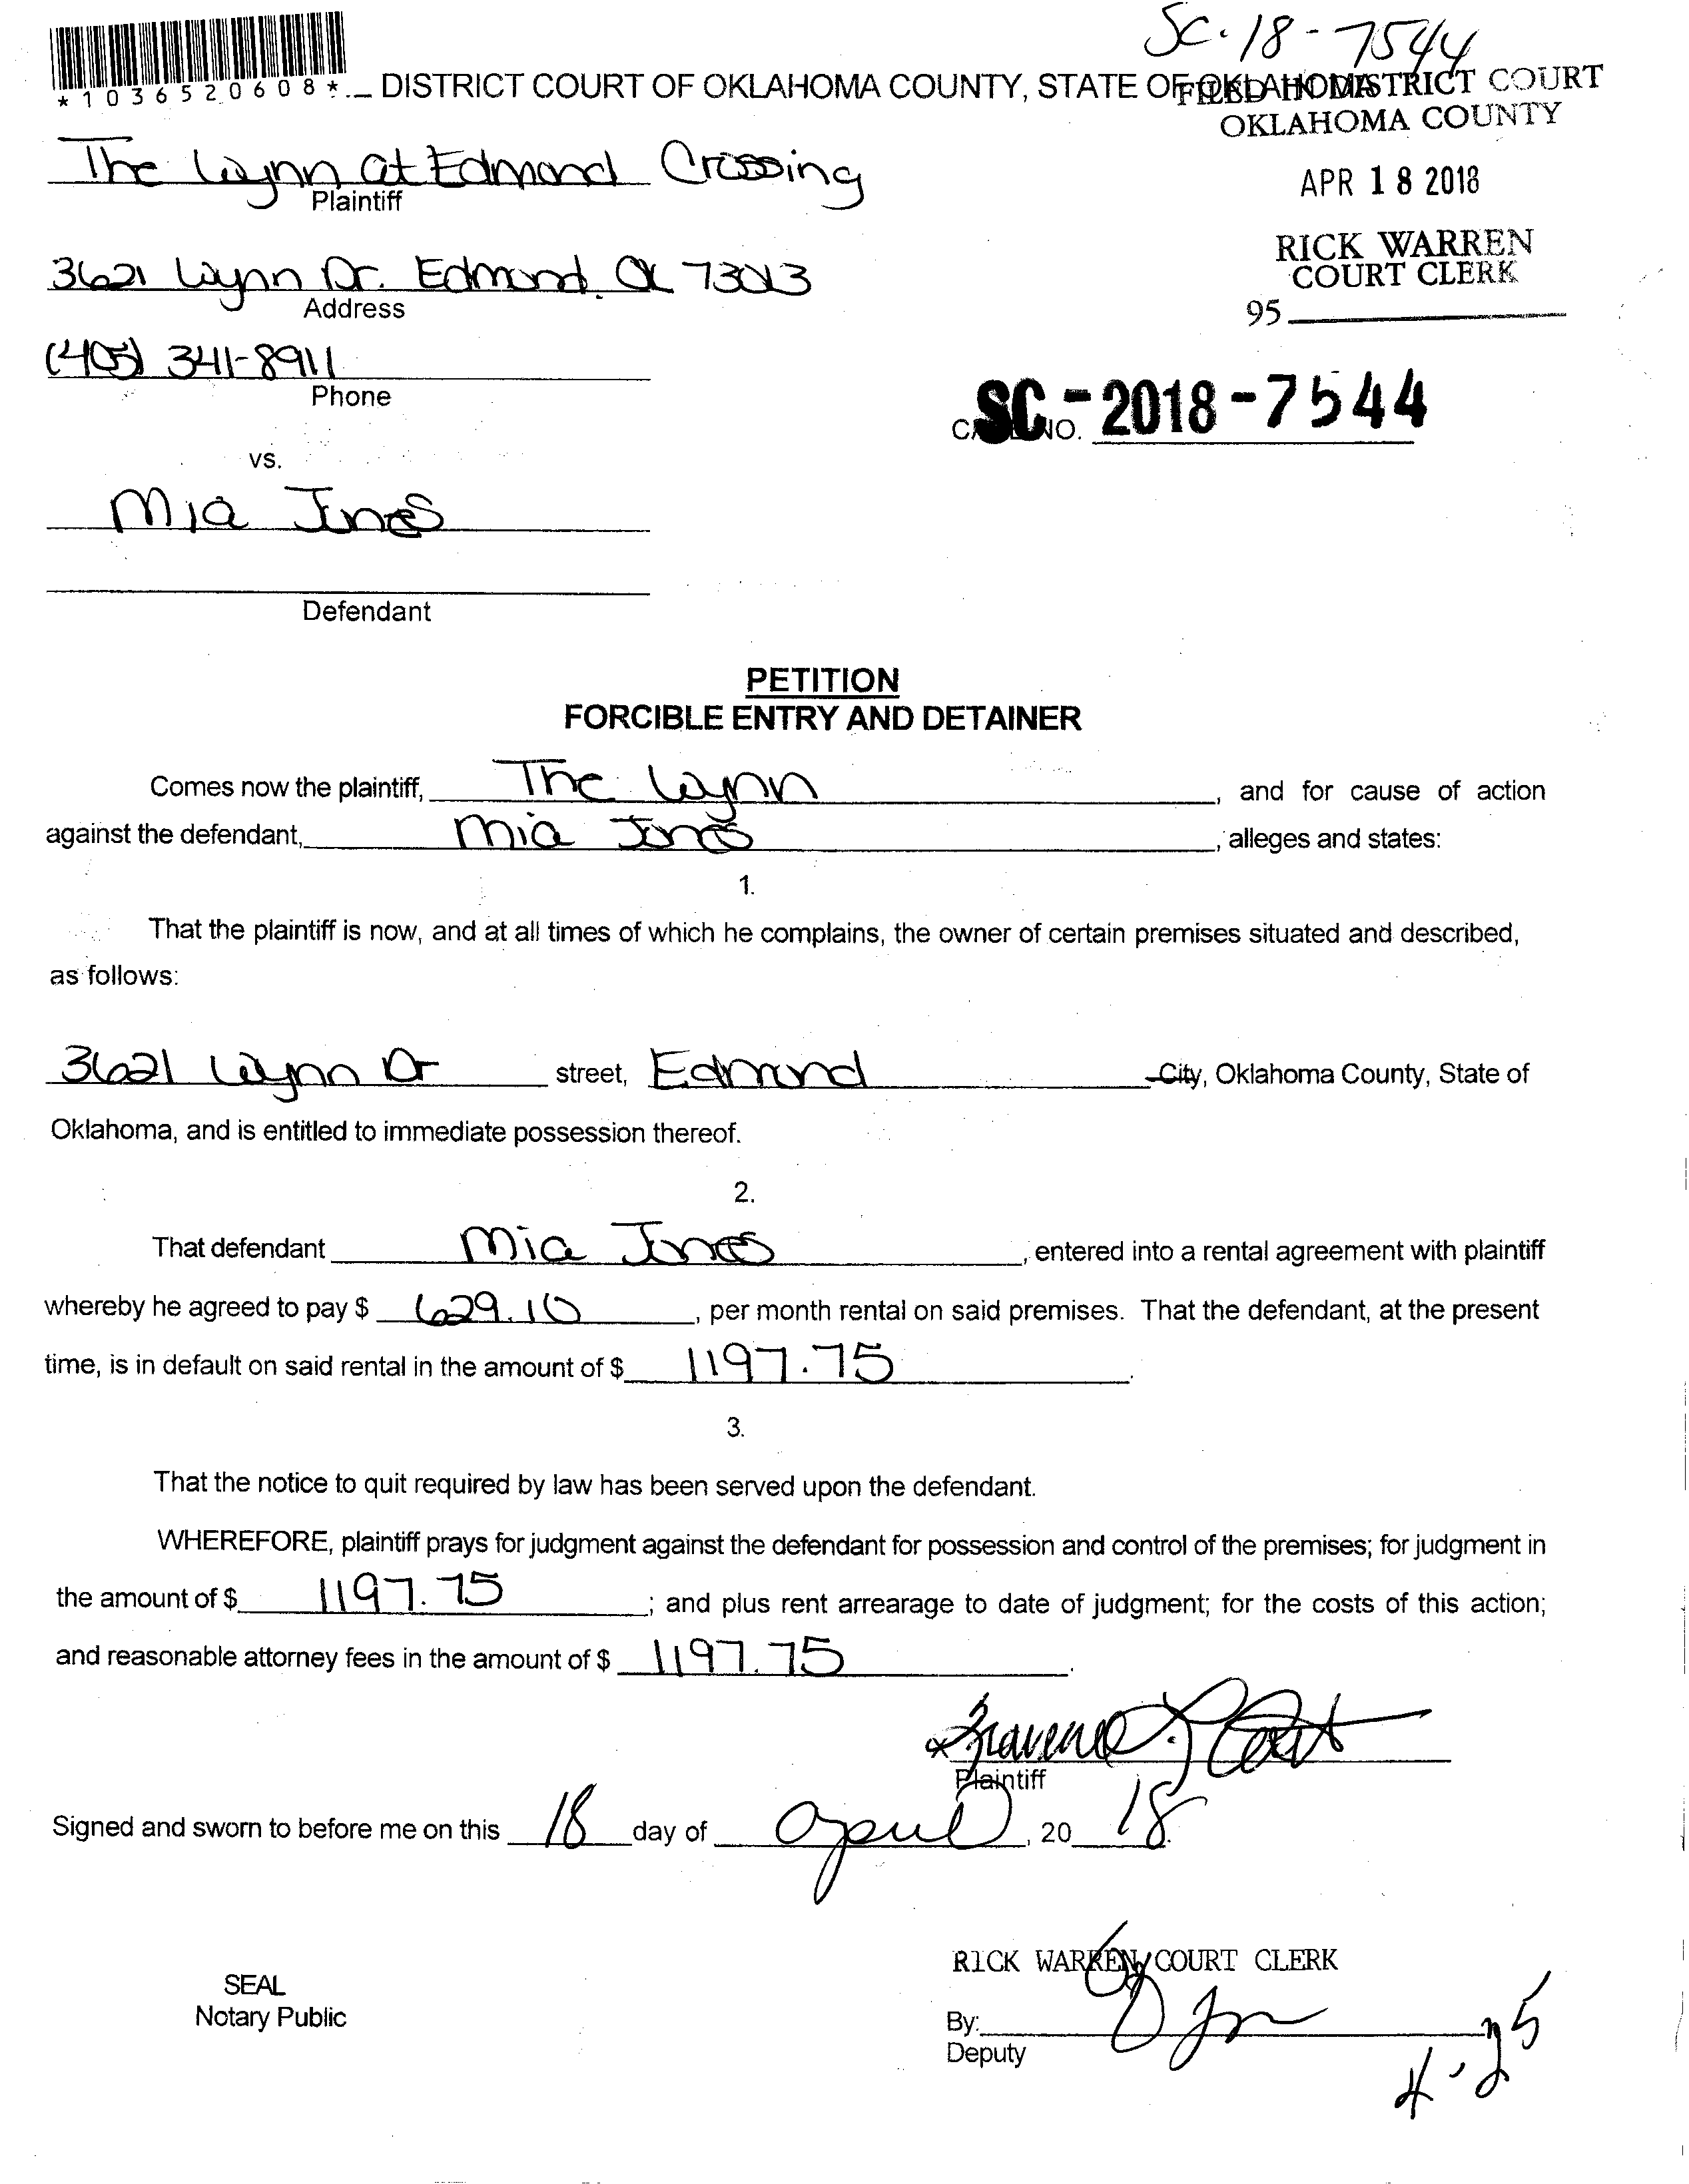 SC-18-7544
*1036520608*
DISTRICT COURT OF OKLAHOMA COUNTY, STATE OF OKLAHOMA
FILED IN DISTRICT COURT
OKLAHOMA COUNTY
The Wynn at Edmond Crossing
Plaintiff
APR 18 2018
RICK WARREN
COURT CLERK
3621 Wynn Dr. Edmond, OK 73013
Address
95
(405) 341-8911
Phone
CASE NO. SC-2018-7544
vs.
Mia Jones
Defendant
PETITION
FORCIBLE ENTRY AND DETAINER
Comes now the plaintiff, The Wynn, and for cause of action
against the defendant, Mia Jones, alleges and states:
1.
That the plaintiff is now, and at all times of which he complains, the owner of certain premises situated and described,
as follows:
3621 Wynn Dr street, Edmond City, Oklahoma County, State of
Oklahoma, and is entitled to immediate possession thereof.
2.
That defendant Mia Jones, entered into a rental agreement with plaintiff
whereby he agreed to pay $ 629.10, per month rental on said premises. That the defendant, at the present
time, is in default on said rental in the amount of $ 1197.75.
3.
That the notice to quit required by law has been served upon the defendant.
WHEREFORE, plaintiff prays for judgment against the defendant for possession and control of the premises; for judgment in
the amount of $ 1197.75; and plus rent arrearage to date of judgment; for the costs of this action;
and reasonable attorney fees in the amount of $ 1197.75.
Plaintiff
Signed and sworn to before me on this 18 day of April, 20 18.
RICK WARREN, COURT CLERK
SEAL
Notary Public
By:
Deputy
4-25